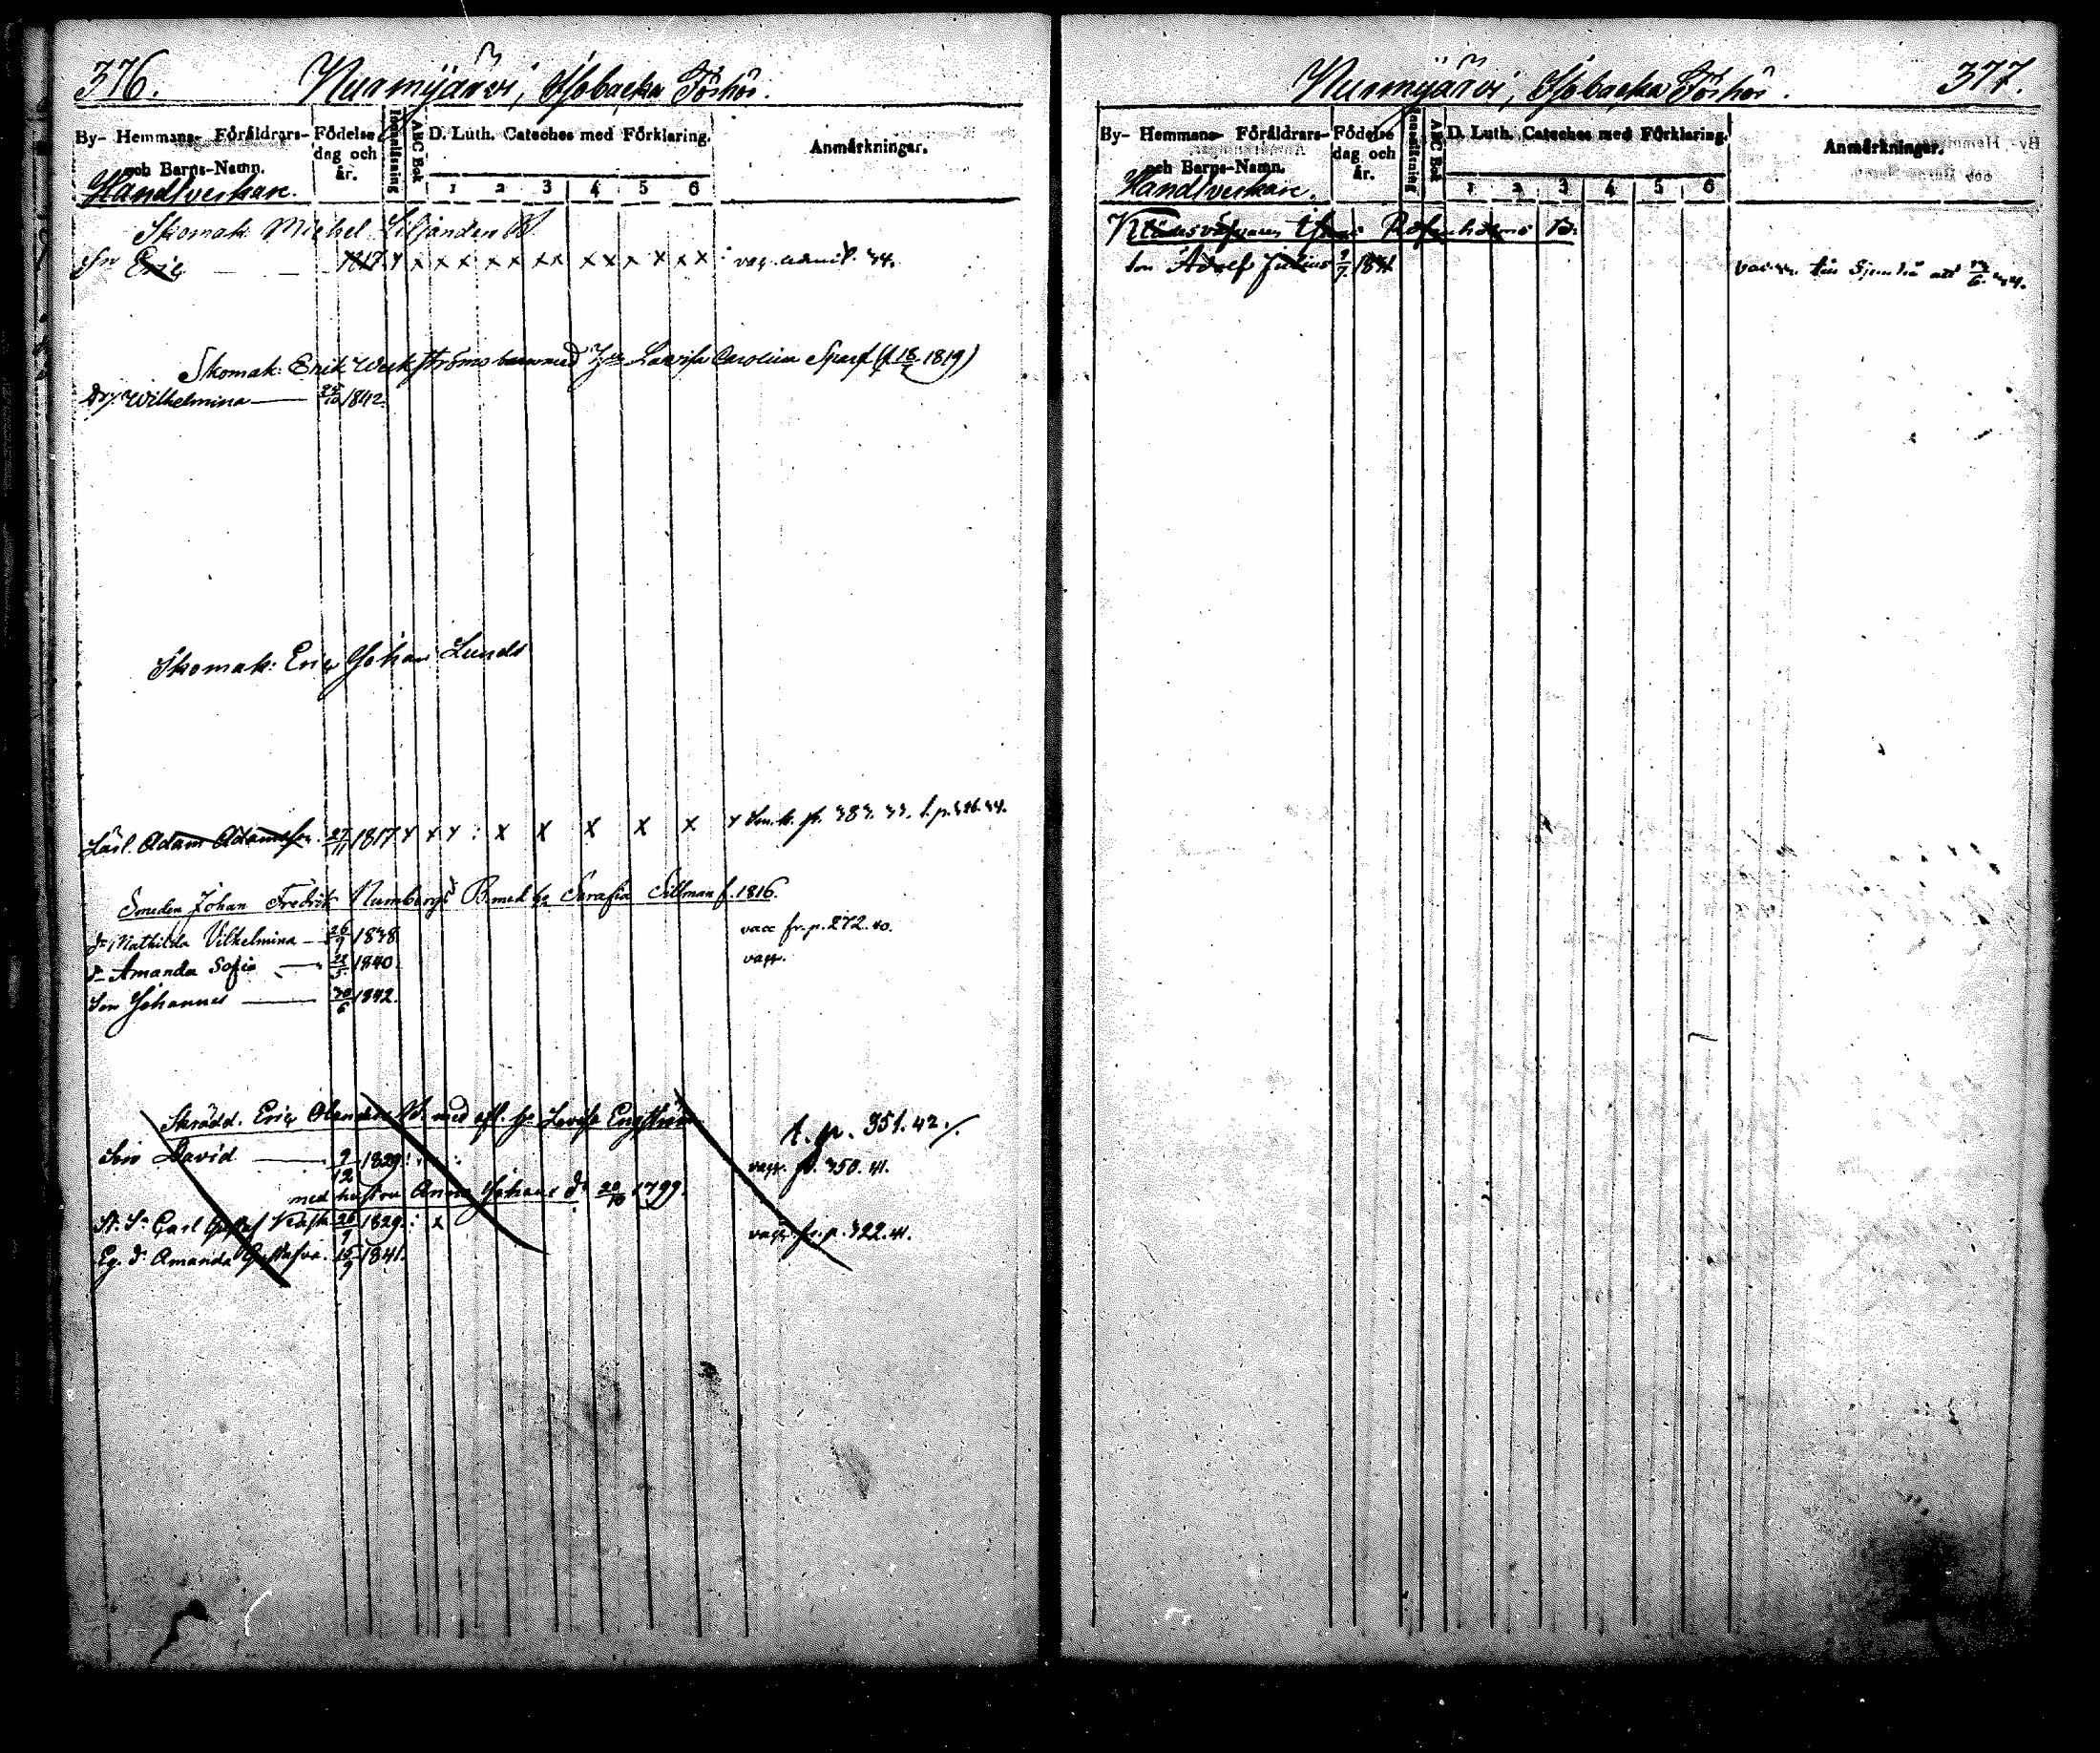 376. Nurmijärvi, Isobacka Förhör.
By- Hemmans- Föräldrars- och Barns-Namn. Födelse dag och år. Innanläsning ABC Bok D. Luth. Cateches med Förklaring. 1 2 3 4 5 6 Anmärkningar.
Handtverkare.
Skomak: Michel Siljander B.
Son Eric 1817 x x x x x x x x x x x x x vac. admit. 34.
Skomak: Erik Weckströms barn med Lovisa Carolina Sparf (f 18 1819)
Dr. Wilhelmina 1842.
Skomak: Eric Johan Lunds
Lärl. Adam Adamsson 27/11 1817 x x x : x x x x x x
Smeden Johan Fredrik Numbergs B. med h. Serafia Sillman f. 1816.
dr Mathilda Vilhelmina 26/9 1838 vacc fr. p. 272. 40.
dr Amanda Sofia 22/5 1840. vacc.
Son Johannes 30/6 1842.
Skrädd. Eric med afl. h. Lovisa Engström t. p. 351. 42.
Son David 2/12 1829 : vacc. p. 350. 41.
med hustru Anna Johans dr 20/10 1799.
St. Sn Carl Gustaf 26/9 1829. : x vacc. fr. p. 322. 41.
Eg. dr Amanda Gustafva. 15/9 1841.
Nurmijärvi, Isobacka Förhör. 377.
By- Hemmans- Föräldrars- och Barns-Namn. Födelse dag och år. Innanläsning ABC Bok D. Luth. Cateches med Förklaring. 1 2 3 4 5 6 Anmärkningar.
Handtverkare.
B.
Son Adolf Julius 1831 till Sjundeå att /6 44.